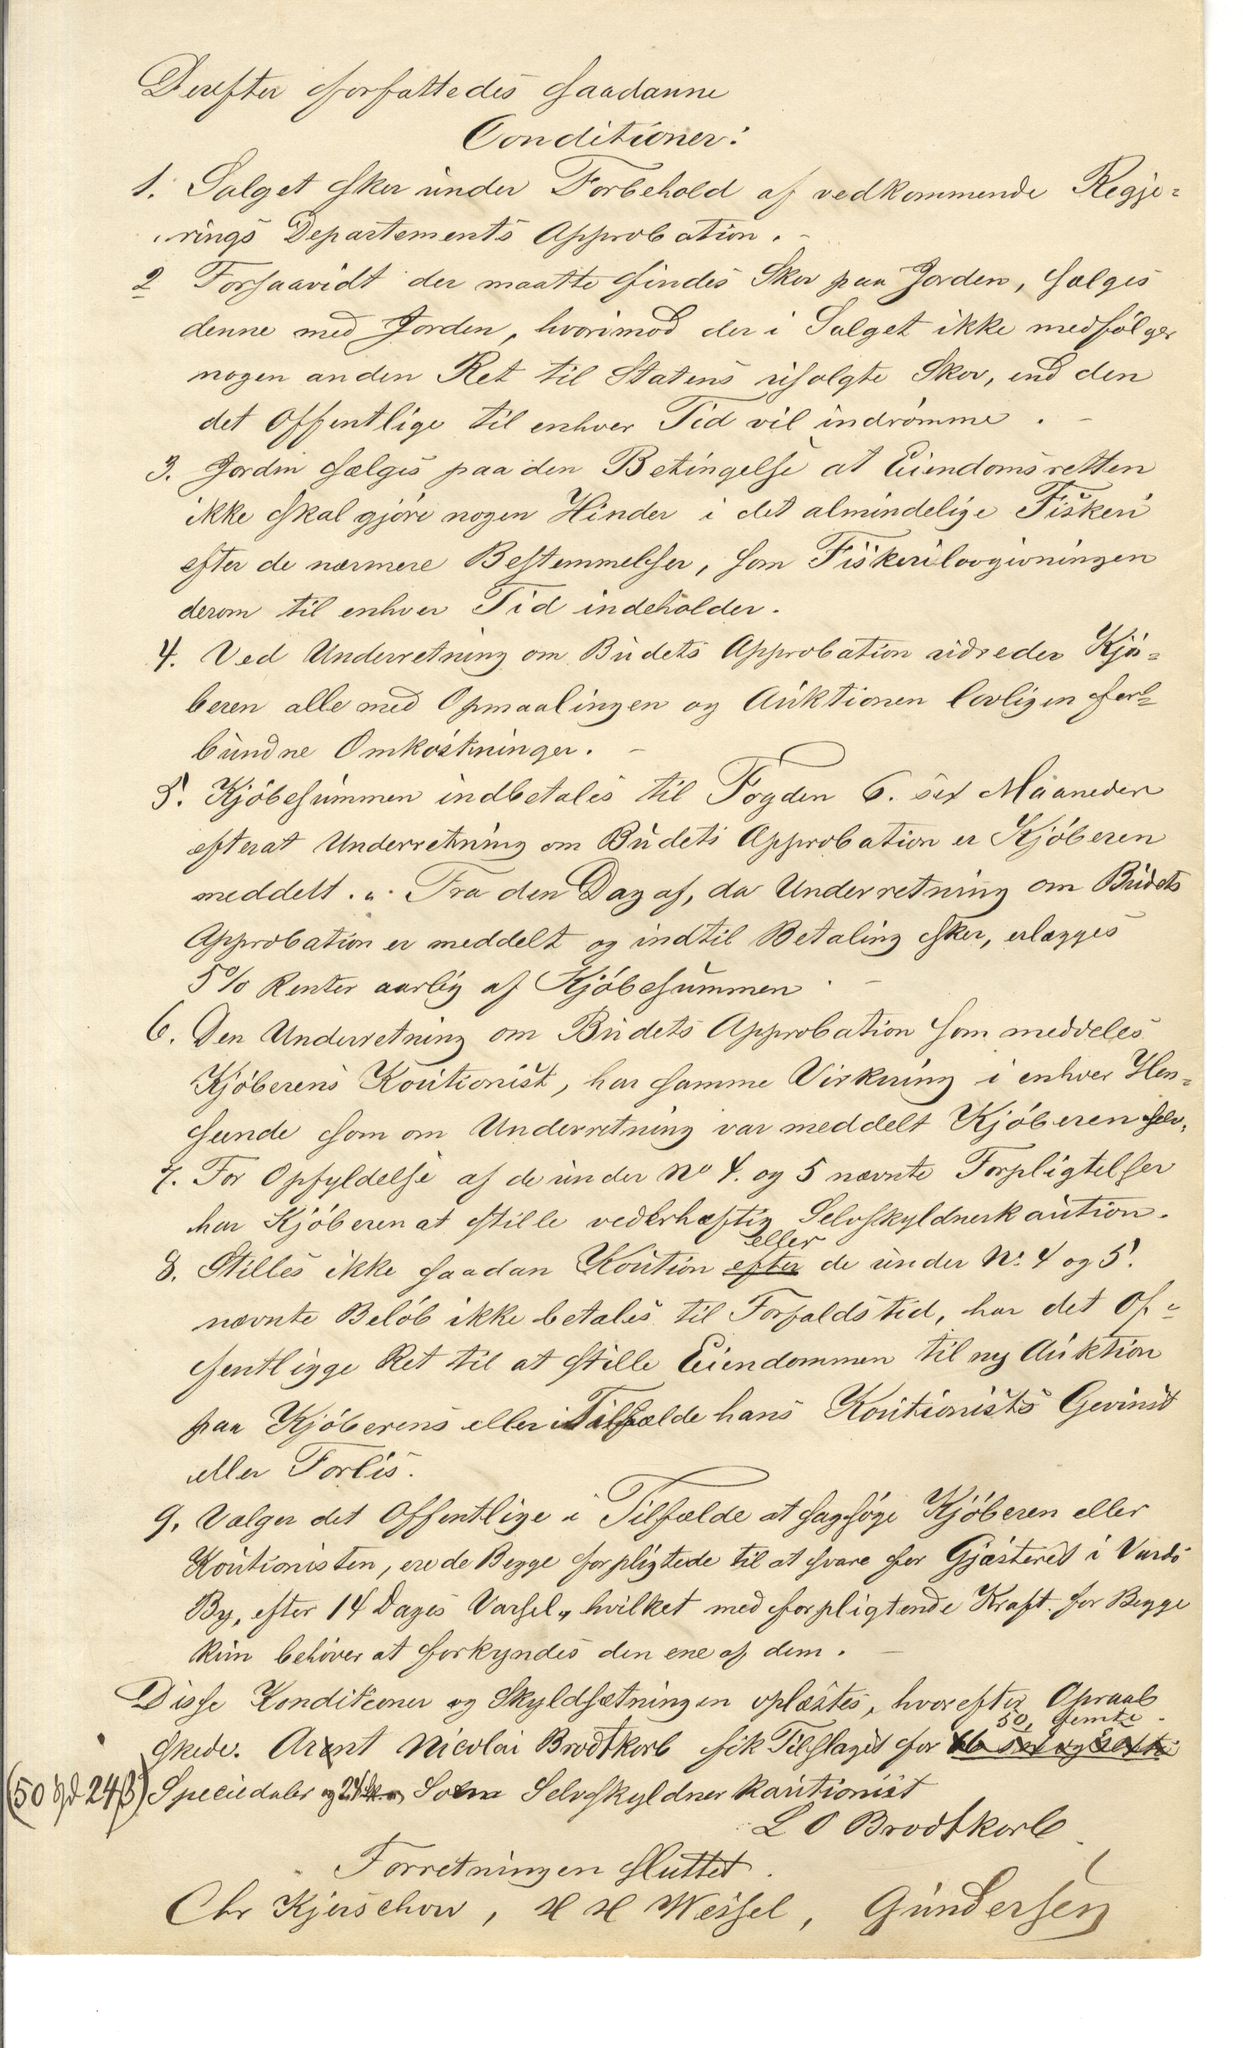 Derefter forfattedes saadanne
Conditioner:
1. Salget sker under Forbehold af vedkommende Regje-
rings Departements Approbation. -
2 Forsaavidt der maatte findes Skov paa Jorden, sælges
denne med Jorden, hvorimod der i Salget ikke medfölger
nogen anden Ret til Statens usolgte Skov, end den
det Offentlige til enhver Tid vil indrömme. -
3. Jorden sælges paa den Betingelse at Eiendomsretten
ikke skal gjöre nogen Hinder i det almindelige Fiskeri
efter de nærmere Bestemmelser, som Fiskerilovgivningen
derom til enhver Tid indeholder.
4. Ved Underretning om Budets Approbation udreder Kjö-
beren alle med Opmaalingen og Auktionen lovligen for-
bundne Omkostninger. -
5. Kjöbesummen indbetales til Fogden 6. sex Maaneder
efterat Underretning om Budets Approbation er Kjöberen
meddelt. Fra den Dag af, da Underretning om Budets
Approbation er meddelt og indtil Betaling sker, erlægges
5% Renter aarlig af Kjöbesummen. -
6. Den Underretning om Budets Approbation som meddeles
Kjöberens Kautionist, har samme Virkning i enhver Hen-
seende som om Underretning var meddelt Kjöberen selv.
7. For Opfyldelse af de under No 4. og 5 nævnte Forpligtelser
har Kjöberen at stille vederhæftig Selvskyldnerkaution.
8. Stilles ikke saadan Kaution efter eller de under No. 4 og 5.
nævnte Belöb ikke betales til Forfaldstid, har det Of-
fentligge Ret til at stille Eiendommen til ny Auktion
paa Kjöberens eller i Tilfælde hans Kautionists Gevinst
eller Forlis.
9. Vælger det Offentlige i Tilfælde at sagsöge Kjöberen eller
Kautionisten, ere de Begge forpligtede til at svare for Gjæsteret i Vardö
By, efter 14 Dages Varsel, hvilket med forpligtende Kraft for Begge
kun behöver at forkyndes den ene af dem. -
Disse Konditioner og Skyldsætningen oplæstes, hvorefter Opraab
skede. Arent Nicolai Brodtkorb fik Tilslaget for 50, femti
(50 Spd 24 ß) Speciedaler og 24 sk. Som Selvskyldner kautionist
L O Brodtkorb
Forretningen sluttet.
Chr Kjerschow, H H Wessel, Gundersen